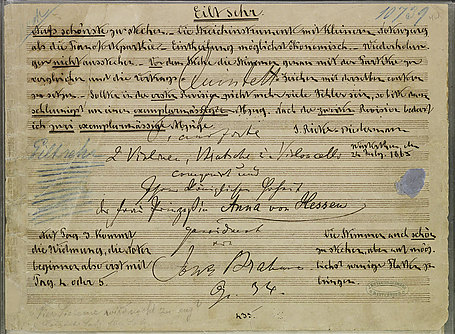 Eilt sehr.
Aufs schönste zu stechen. Die Streichinstrumente mit kleineren Notenzeilen
als die Pianofortepartie. Eintheilung möglichst ökonomisch. Wiederholun-
gen nicht ausstechen. Vor dem Stiche die Stimmen genau mit der Partitur zu
vergleichen und die Vortrags-Zeichen mit derselben conform
Quintett
zu setzen. Sollten in der ersten Revision nicht mehr viele Fehler sein, so bitte um
schleunigst um einen exemplarmässigen Abzug, nach der zweiten Revision bedarf
ich zwei exemplarmässige Abzüge.
Pianoforte
J. Rieter-Biedermann
Eilt sehr
2 Violinen, Bratsche u. Violoncello
24 July 1865
componirt und
Ihrer Königlichen Hoheit
der Frau Prinzessin Anna von Hessen
gewidmet
von
Johs. Brahms
Op. 34.
Auf Pag. 3 kommt
die Widmung, die Noten
beginnen also erst mit
Pag. 4 oder 5.
Die Stimmen auch schön
zu stechen, aber auf mög-
lichst wenige Platten zu
bringen.